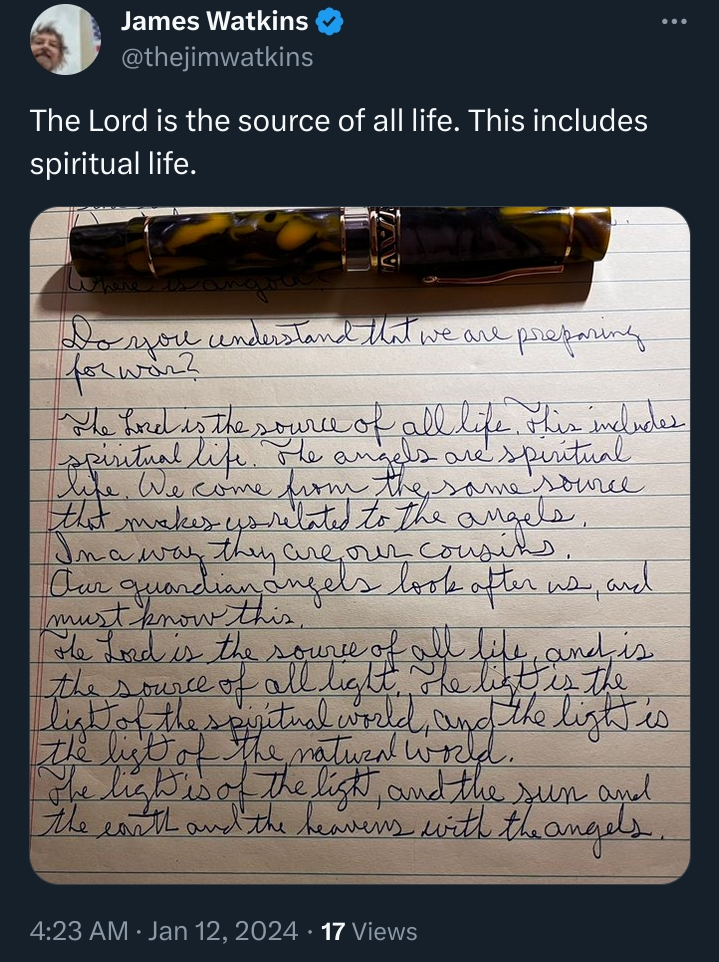 James Watkins
@thejimwatkins
The Lord is the source of all life. This includes
spiritual life.
Where is
Do you understand that we are preparing
for war?
The Lord is the source of all life. This includes
spiritual life. The angels are spiritual
life. We come from the same source
that makes us related to the angels.
In a way they are our cousins.
Our guardian angels look after us, and
must know this.
The Lord is the source of all life, and is
the source of all light. The light is the
light of the spiritual world, and the light is
the light of the natural world.
The light is of the light, and the sun and
the earth and the heavens with the angels.
4:23 AM · Jan 12, 2024 · 17 Views